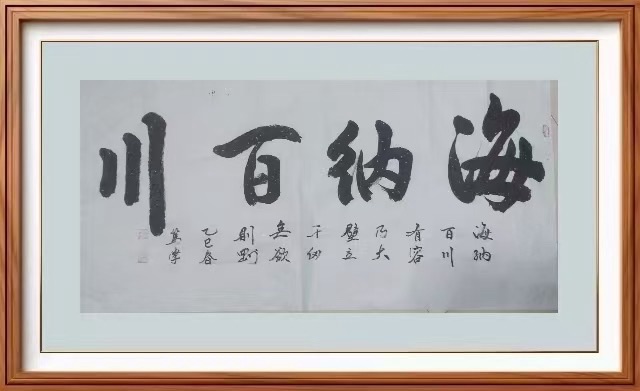 海纳百川
海纳
百川
有容
乃大
壁立
千仞
無欲
則剛
乙巳春